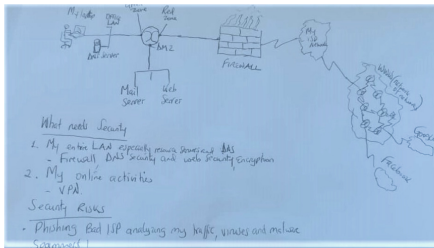 My laptop
LAN
Zone
Red
Zone
DMZ
DNS Server
Mail
Server
Web
Server
FIREWALL
My
ISP
Network
Facebook
What needs Security
1. My entire LAN especially Servers and
- Firewall, DNS security and web security, Encryption
2. My online activities
- VPN
Security Risks
• Phishing, Bad ISP analysing my traffic, viruses and malware